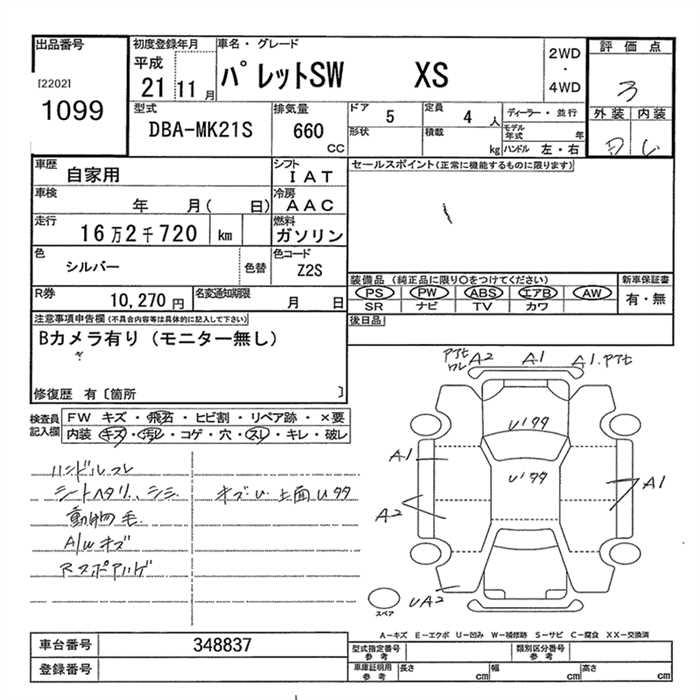 出品番号
[2202]
1099
初度登録年月
平成
21 11 月
車名・グレード
パレットSW XS
2WD
・
4WD
評価点
3
外装 内装
型式
DBA-MK21S
排気量
660
CC
ドア 5
形状
定員 4 人
積載 kg
ディーラー・並行
モデル年式 年
ハンドル 左・右
車歴 自家用
シフト IAT
車検 年 月( 日)
冷房 AAC
走行 16万2千720 km
燃料 ガソリン
色 シルバー
色替
色コード Z2S
R券 10,270円
名変通知期限 月 日
セールスポイント(正常に機能するものに限ります)
装備品(純正品に限り○をつけてください)
PS PW ABS エアB AW
SR ナビ TV カワ
新車保証書
有・無
後日品
注意事項申告欄(不具合内容等は具体的に記入して下さい)
Bカメラ有り(モニター無し)
修復歴 有〔箇所 〕
検査員記入欄
FW キズ・飛石・ヒビ割・リペア跡・×要
内装 キズ・汚レ・コゲ・穴・スレ・キレ・破レ
ハンドルスレ
シートヘタリ、シミ
キズU 上面Uタタ
動物毛
A/Wキズ
A2 A1 A1
Uタタ
Uタタ
A1
A1
A2
UA2
スペア
A－キズ E－エクボ U－凹み W－補修跡 S－サビ C－腐食 XX－交換済
車台番号 348837
登録番号
型式指定番号
参考
類別区分番号
参考
車庫証明用
参考
長さ cm
幅 cm
高さ cm